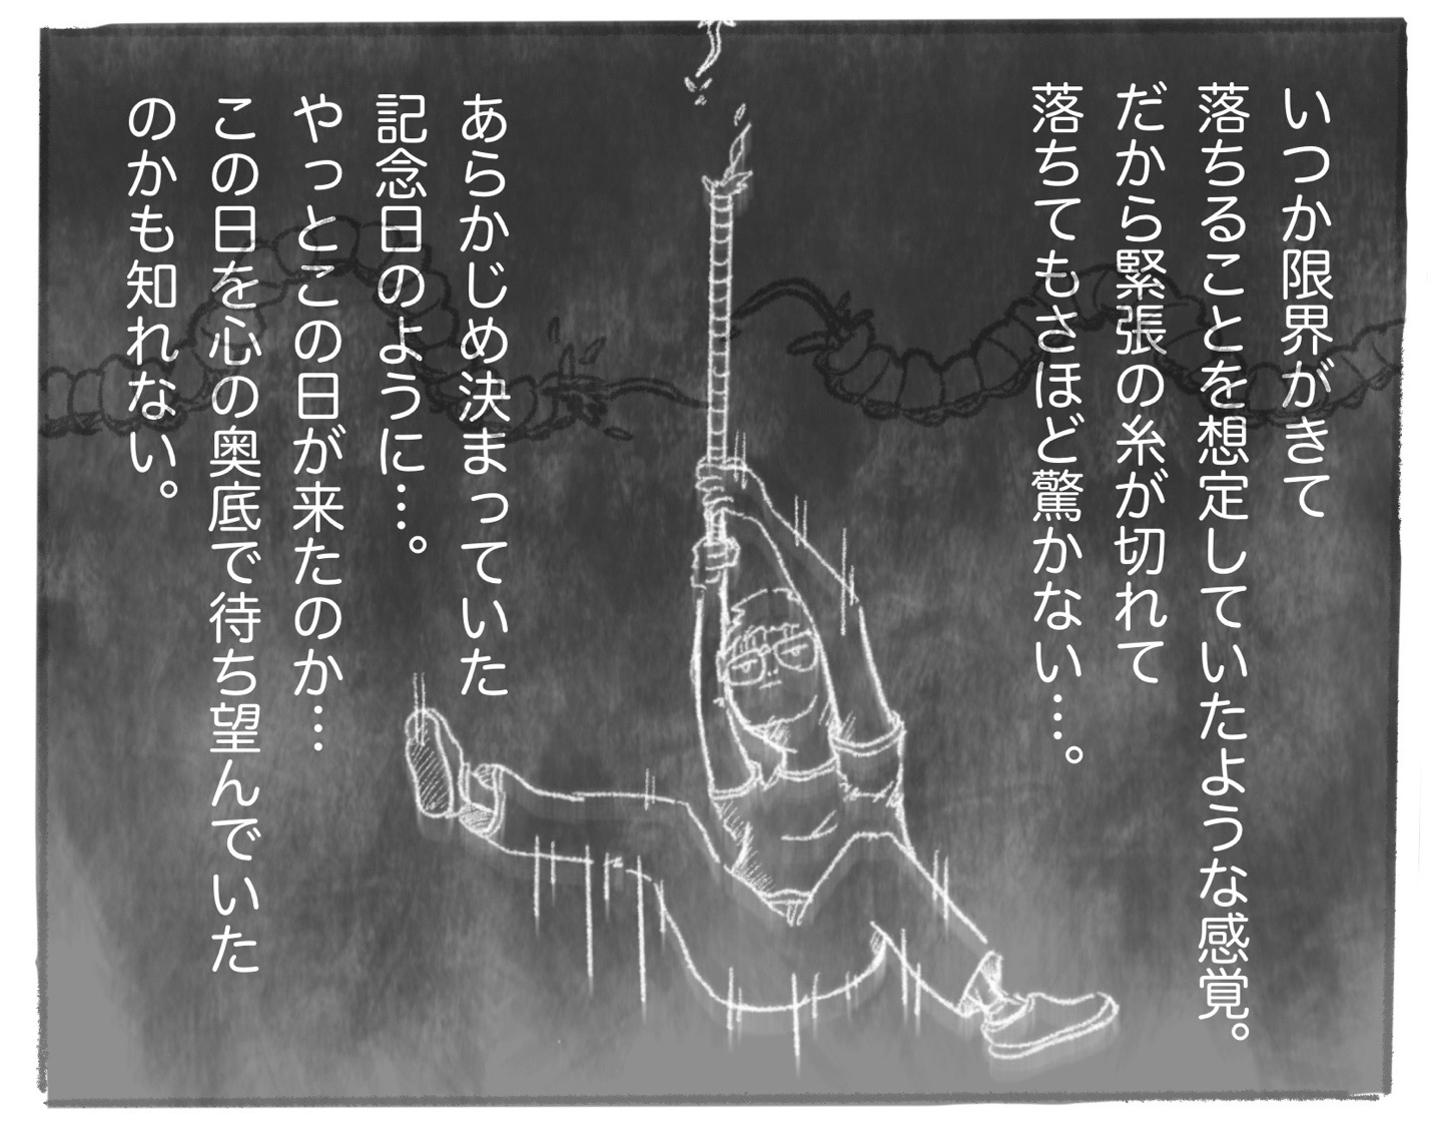 いつか限界がきて
落ちることを想定していたような感覚。
だから緊張の糸が切れて
落ちてもさほど驚かない…。
あらかじめ決まっていた
記念日のように…。
やっとこの日が来たのか…
この日を心の奥底で待ち望んでいた
のかも知れない。